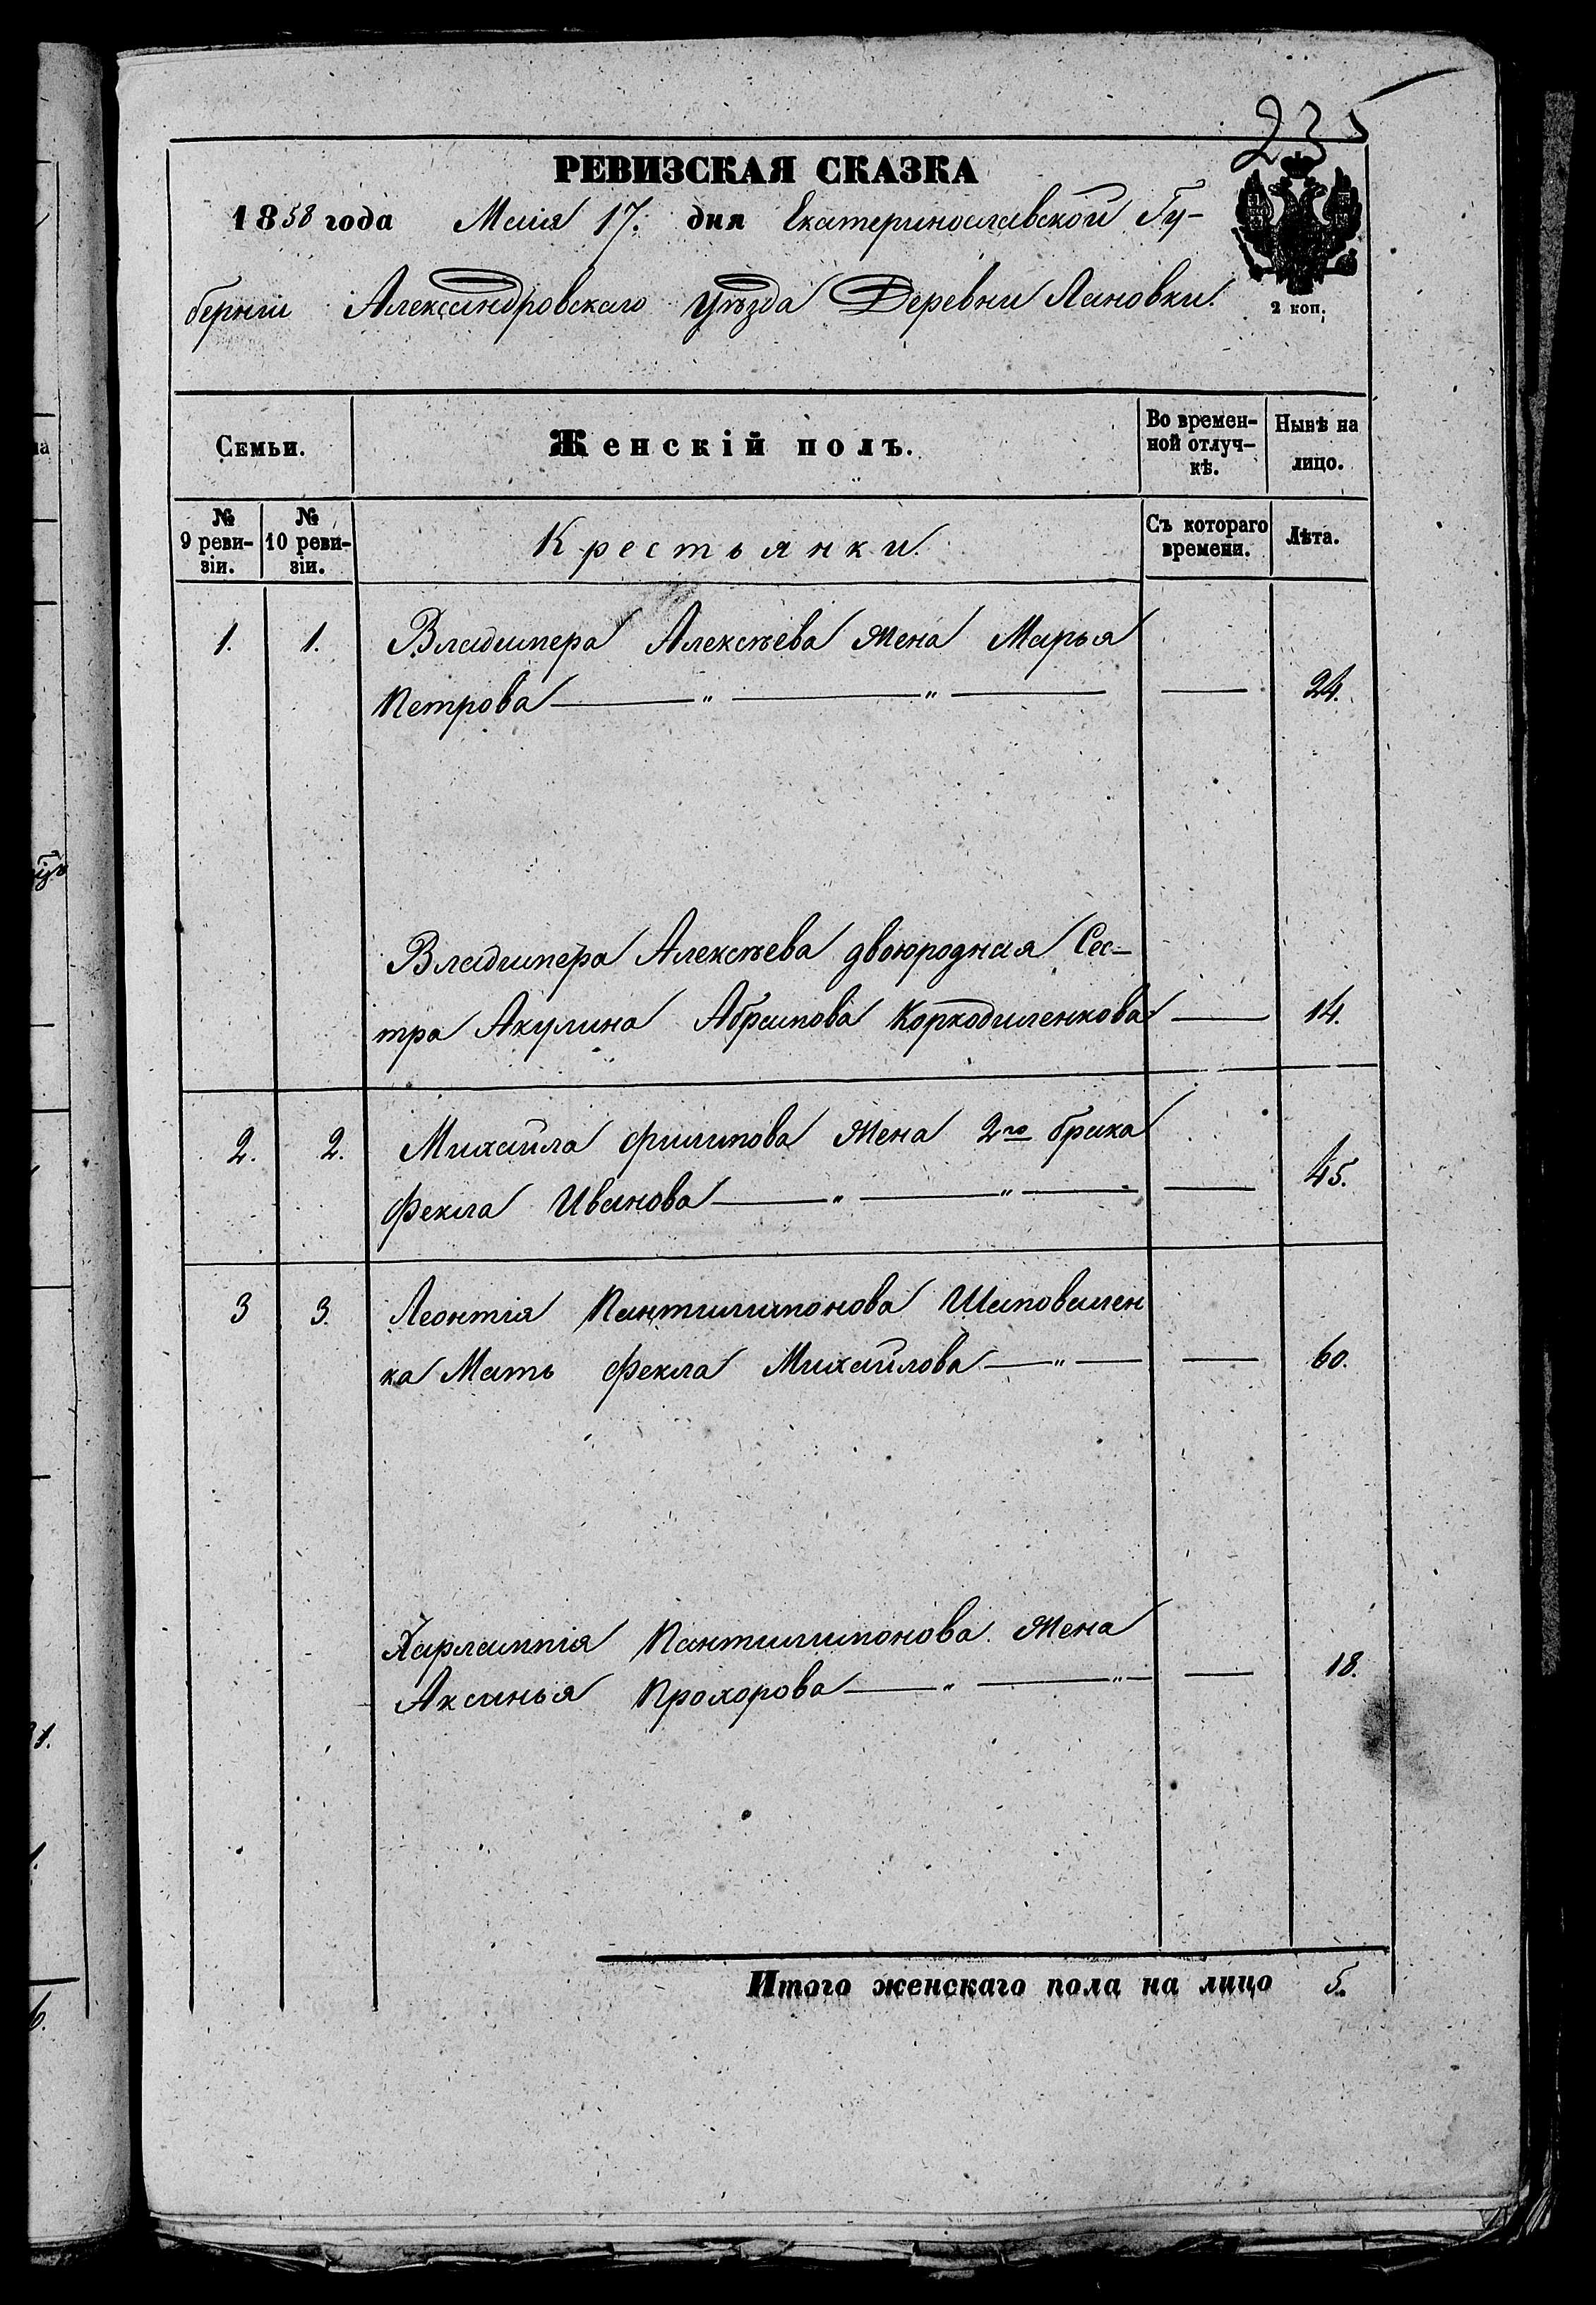 235
РЕВИЗСКАЯ СКАЗКА
1858 года Маія 17. дня Екатеринославской Гу-
берніи Александровскаго Уѣзда Деревни Лановки.
2 коп.
Семьи.
Женскій полъ.
Во времен-
ной отлуч-
кѣ.
Нынѣ на
лицо.
№
9 реви-
зіи.
№
10 реви-
зіи.
Крестьянки.
Съ котораго
времени.
Лѣта.
1. 1. Владимера Алексѣева жена Марья
Петрова — „ — „ — — 24.
Владимера Алексѣева двоюродная Сес-
тра Акулина Абрамова Коркодиленкова — 14.
2. 2. Михайла Филипова жена 2го брака
Фекла Иванова — „ — „ — — 45.
3 3. Леонтія Пантилимонова Шаповален
ка Мать Фекла Михайлова — „ — — 60.
Харлампія Пантилимонова жена
Аксинья Прохорова — „ — „ — — 18.
Итого женскаго пола на лицо 5.